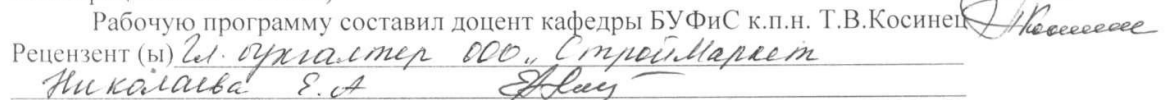 Рабочую программу составил доцент кафедры БУФиС к.п.н. Т.В.Косинец
Рецензент (ы) Гл. бухгалтер ООО „СтройМаркет
Николаева Е.А